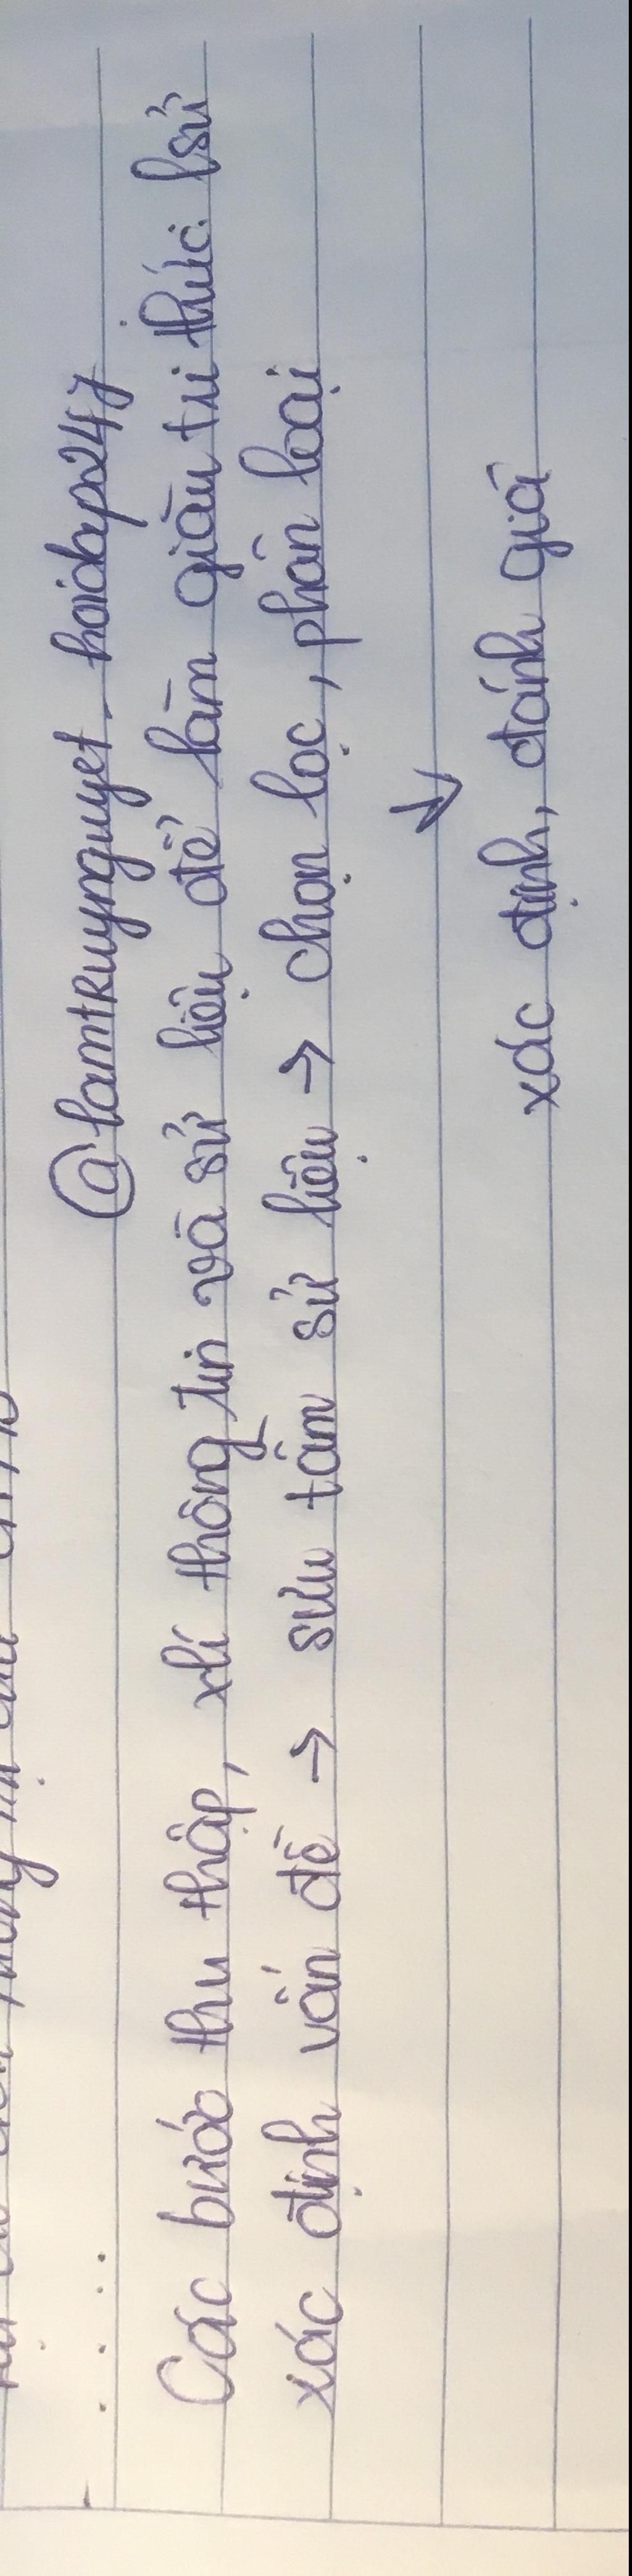 @lamtruynguyet_hoidap247
Các bước thu thập, xlí thông tin và sử liệu để làm giàu tri thức lsử
xác định vấn đề → sưu tầm sử liệu → chọn lọc, phân loại
↓
xác định, đánh giá